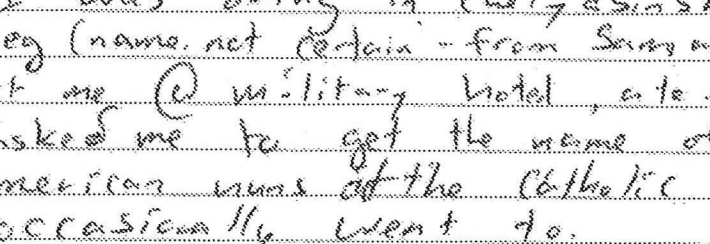 eg (name not certain - from Sam
me @ military hotel, ate
asked me to get the name of
merican nuns at the Catholic
occasionally went to.